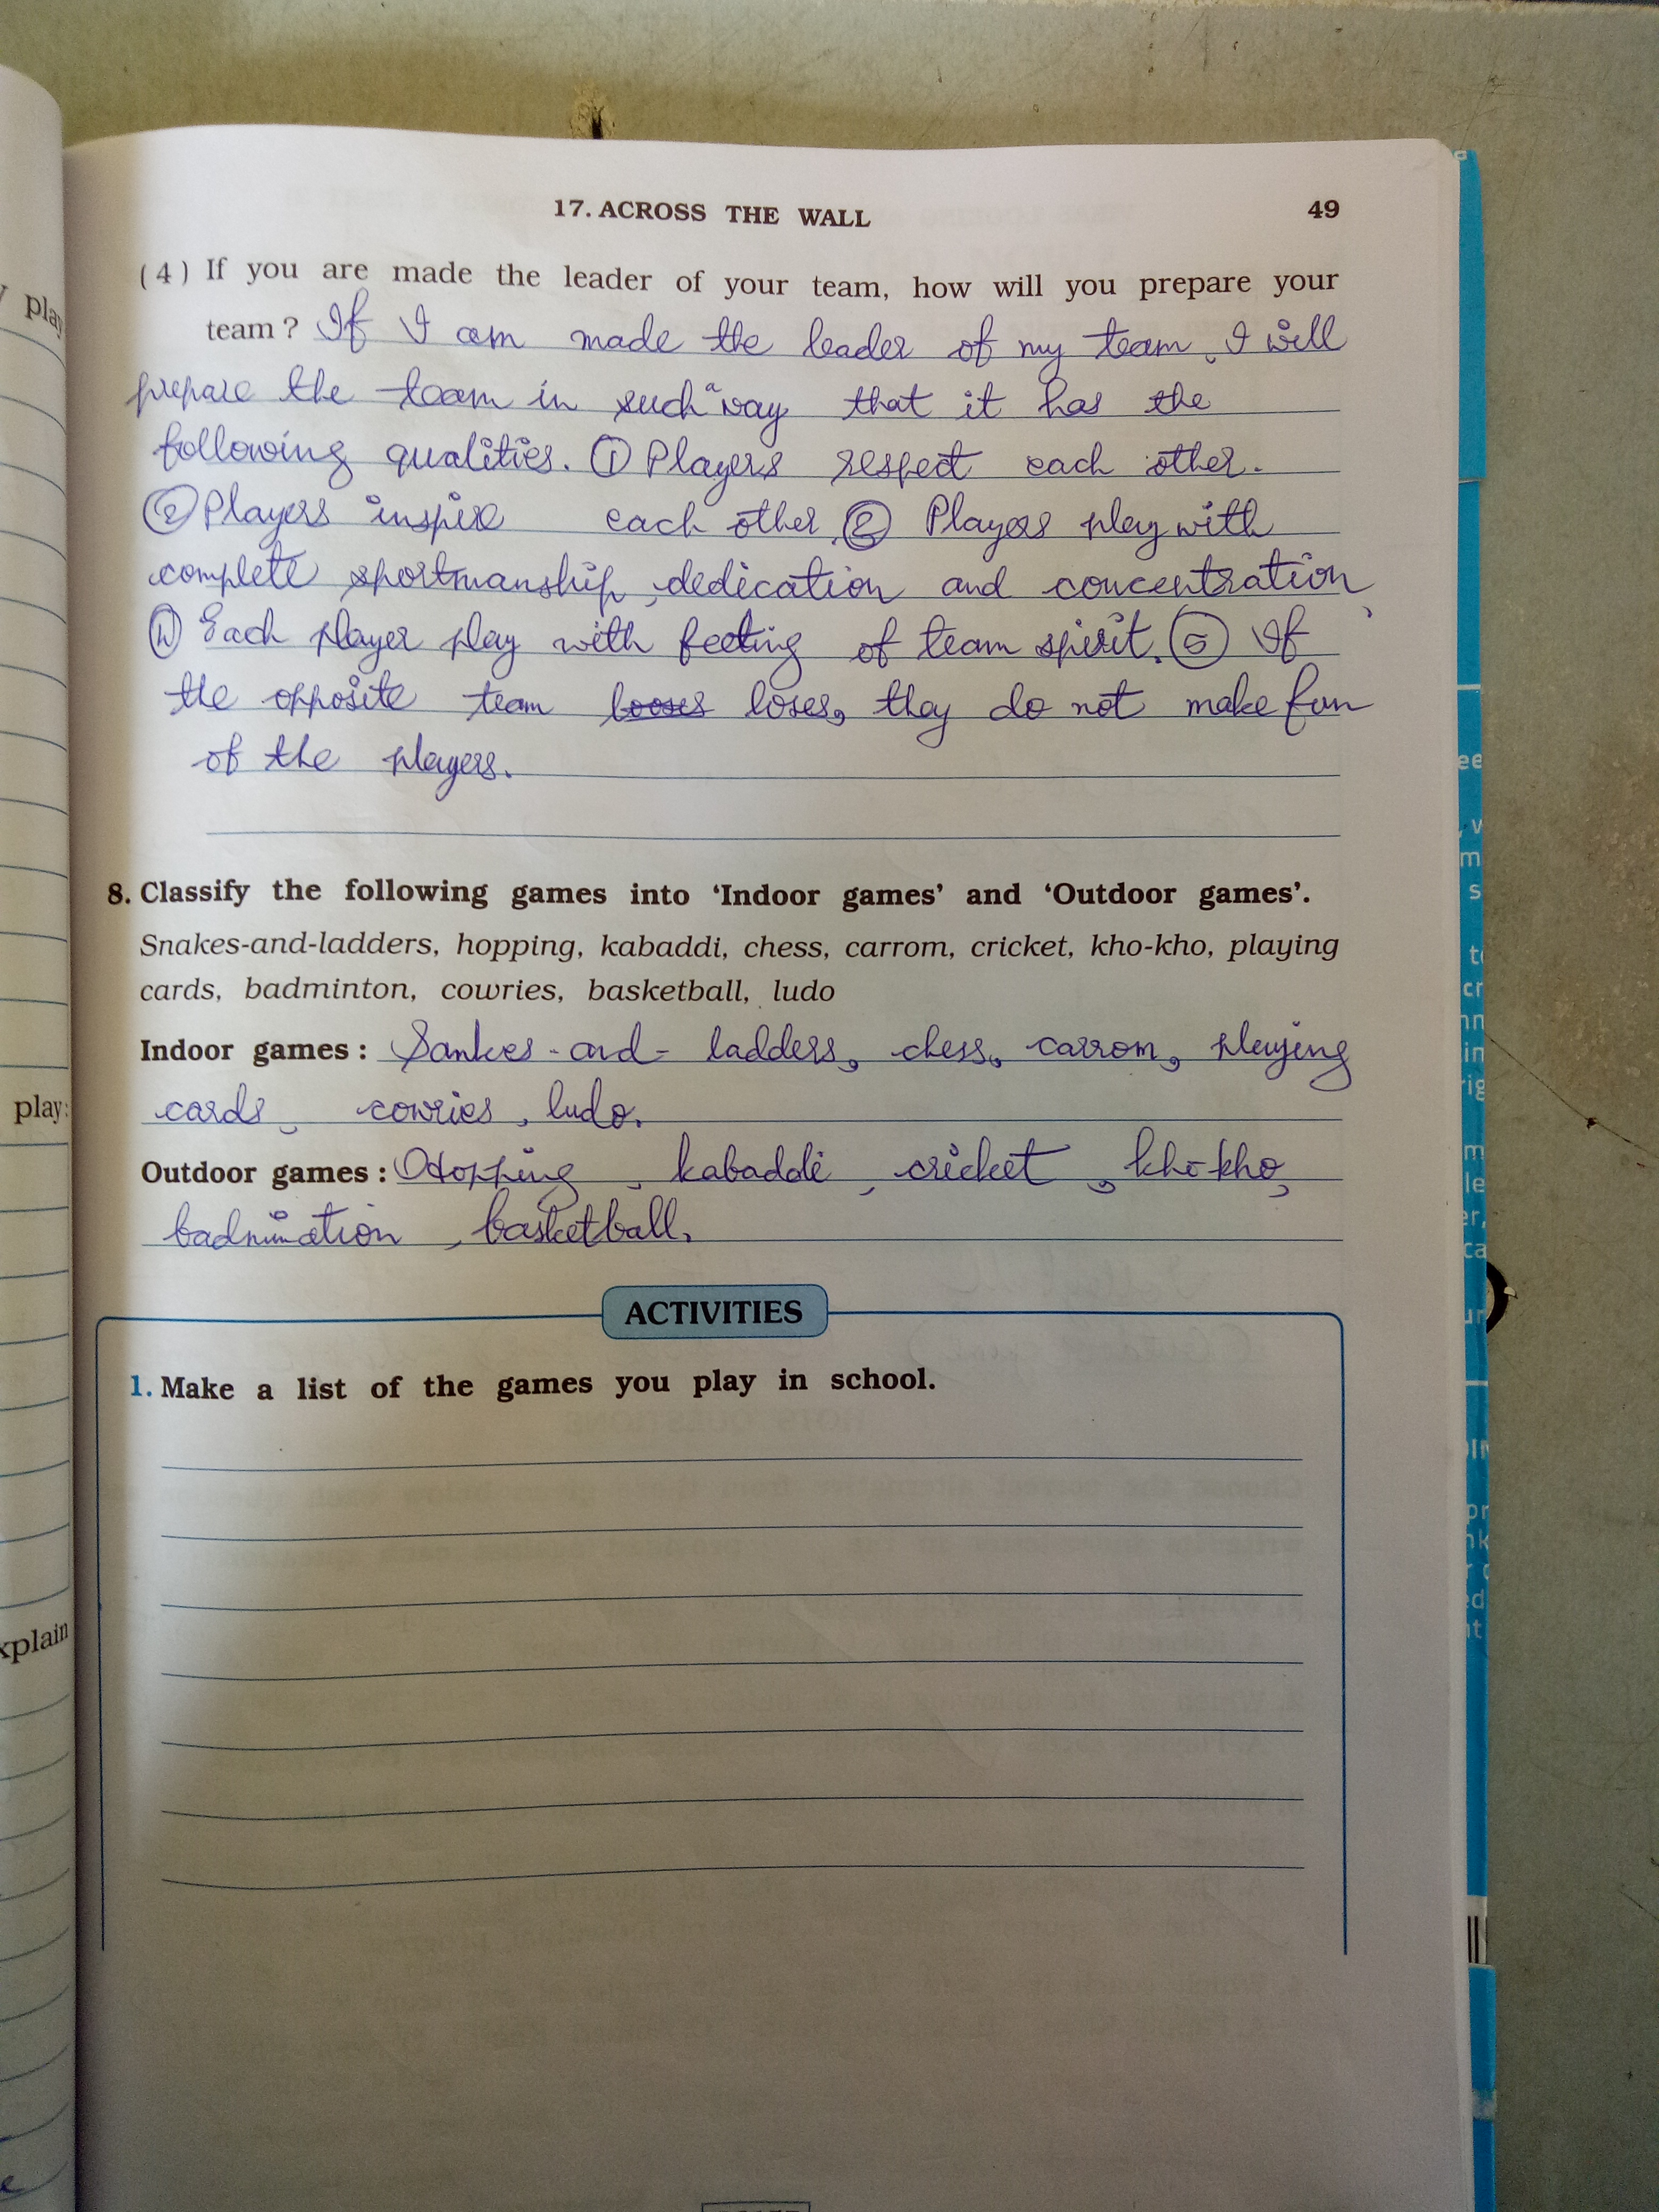 17. ACROSS THE WALL 49
(4) If you are made the leader of your team, how will you prepare your
team? If I am made the leader of my team, I will
prepare the team in such a way that it has the
following qualities. ① Players respect each other.
② Players inspire each other. ② Players play with
complete sportmanship, dedication and concentration,
Each player play with feeling of team spirit. ⑤ If
the opposite team looses loses, they do not make fun
of the players.
8. Classify the following games into ‘Indoor games’ and ‘Outdoor games’.
Snakes-and-ladders, hopping, kabaddi, chess, carrom, cricket, kho-kho, playing
cards, badminton, cowries, basketball, ludo
Indoor games : Sankes-and-ladders, chess, carrom, playing
cards, cowries, ludo.
Outdoor games : Hopping, kabaddi, cricket, kho-kho,
basketball.
ACTIVITIES
1. Make a list of the games you play in school.
play
play:
xplain